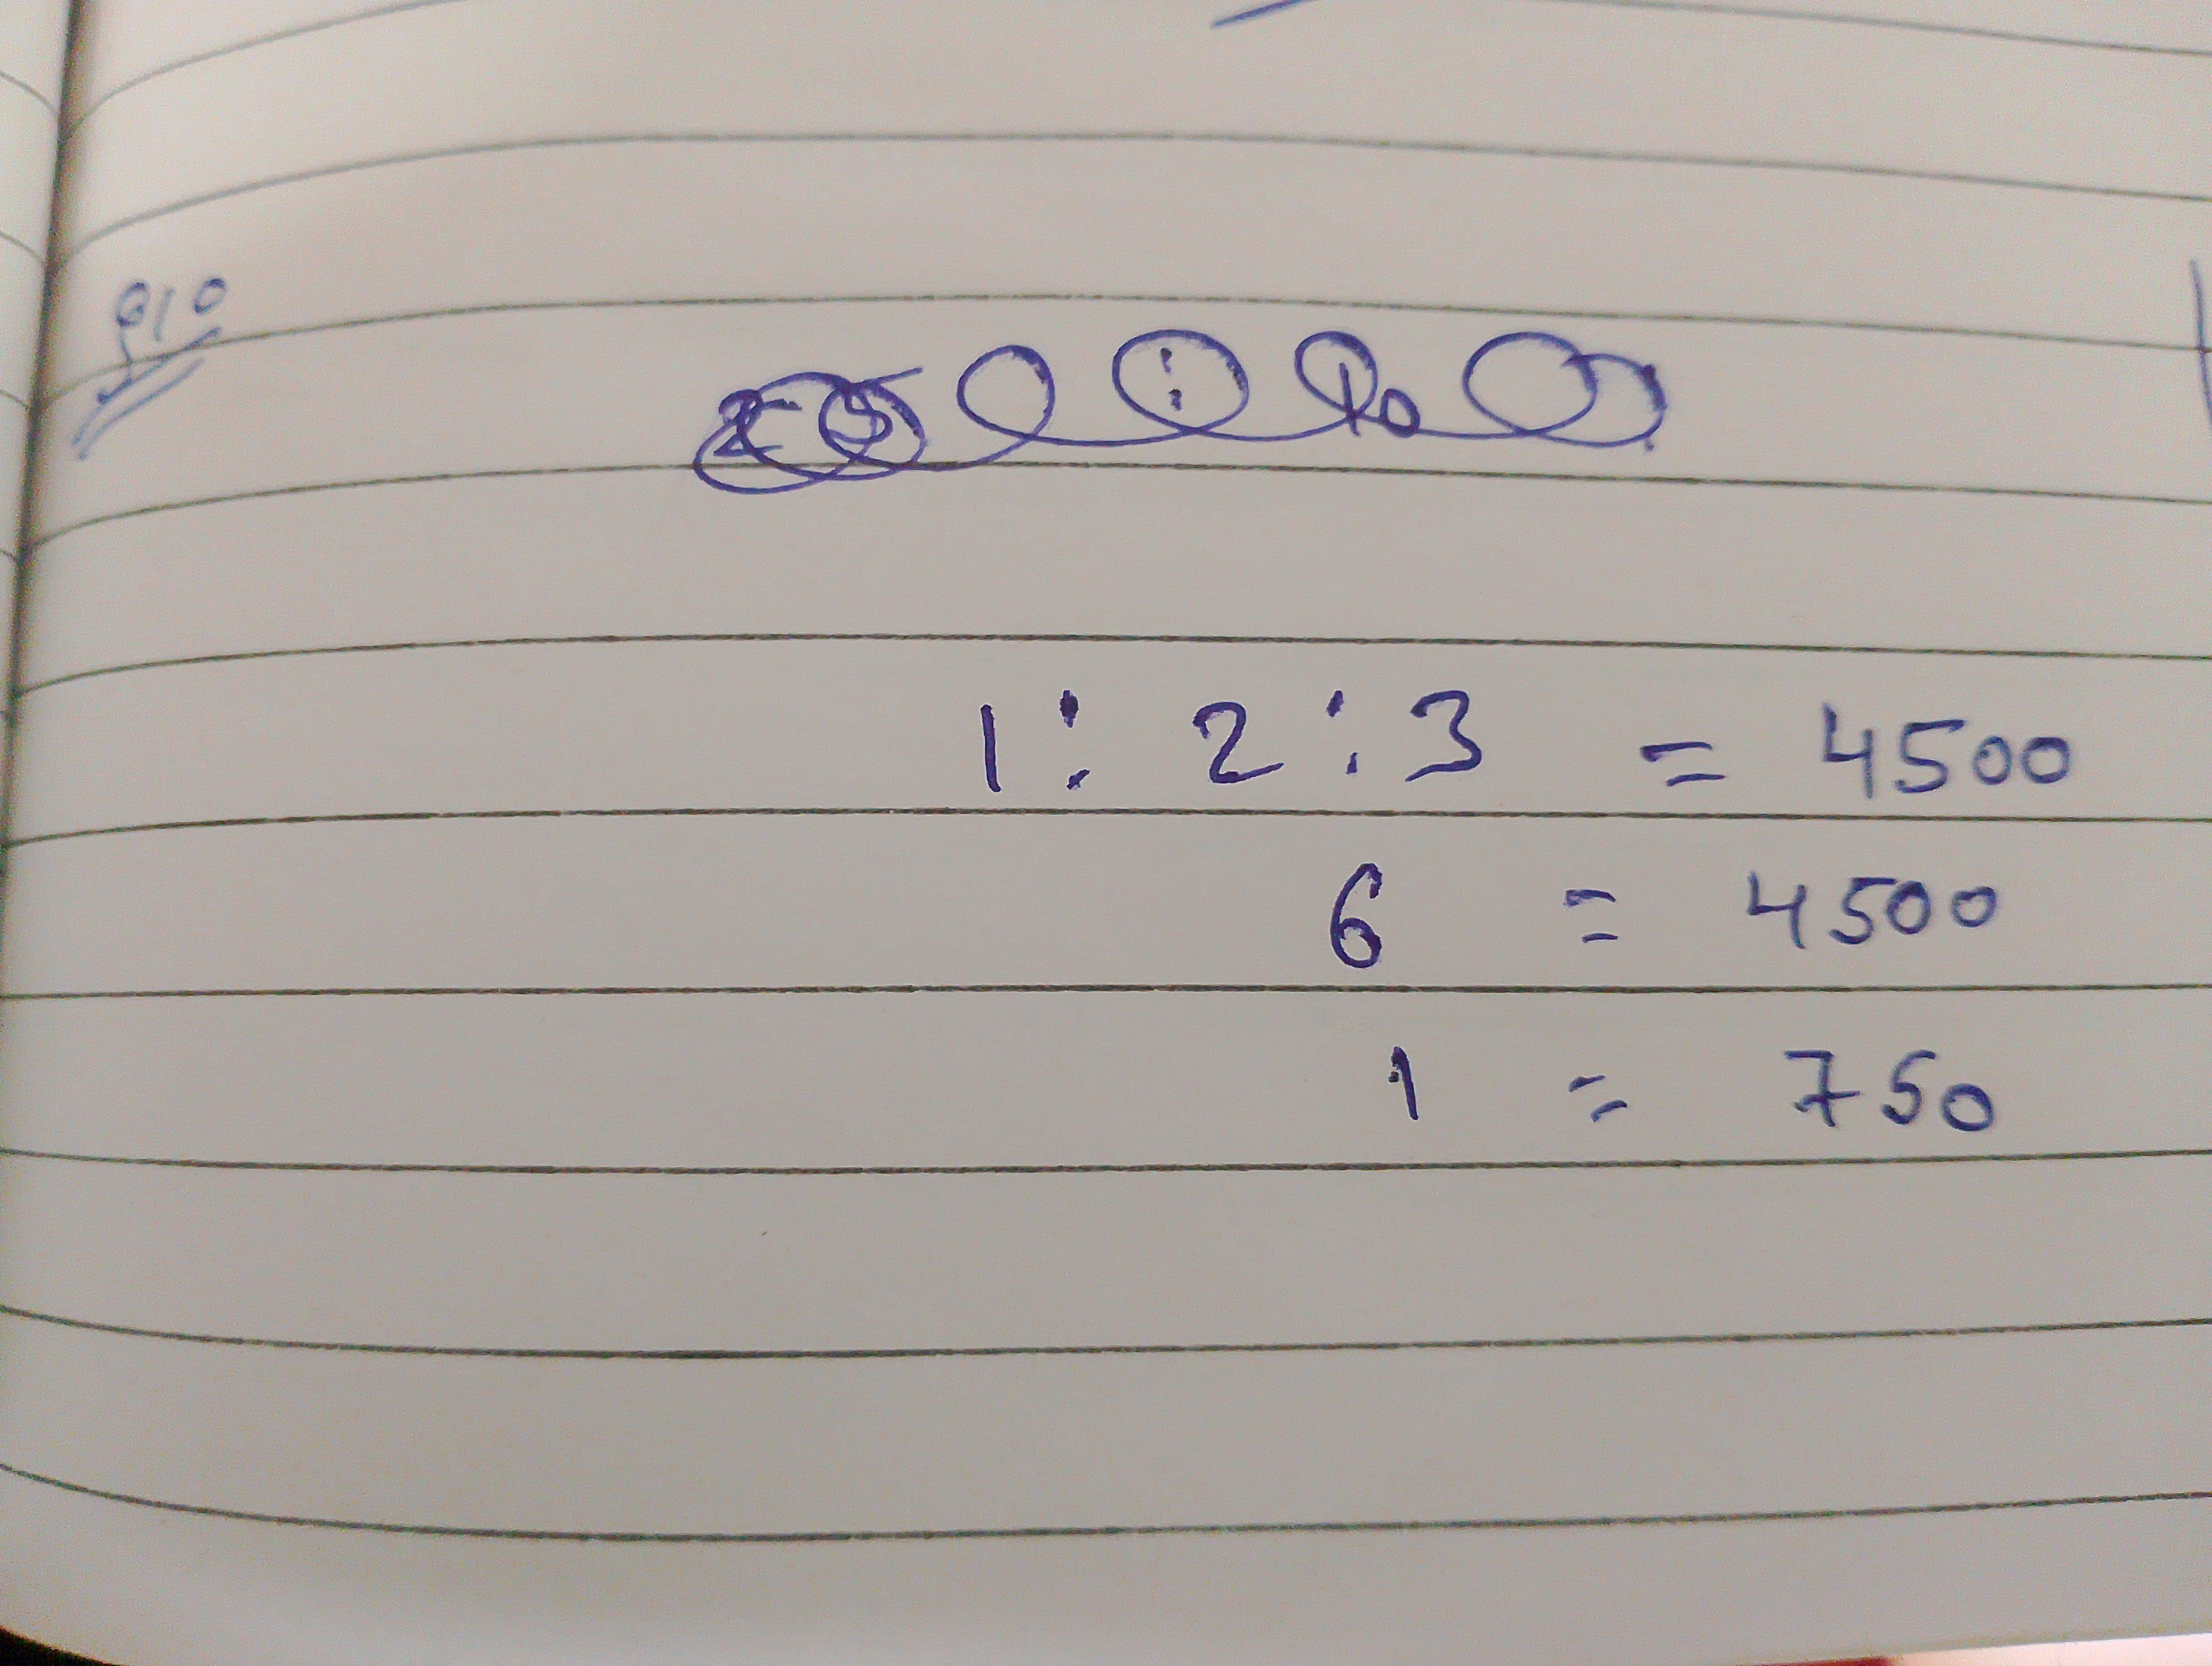 1 : 2 : 3 = 4500
6 = 4500
1 = 750